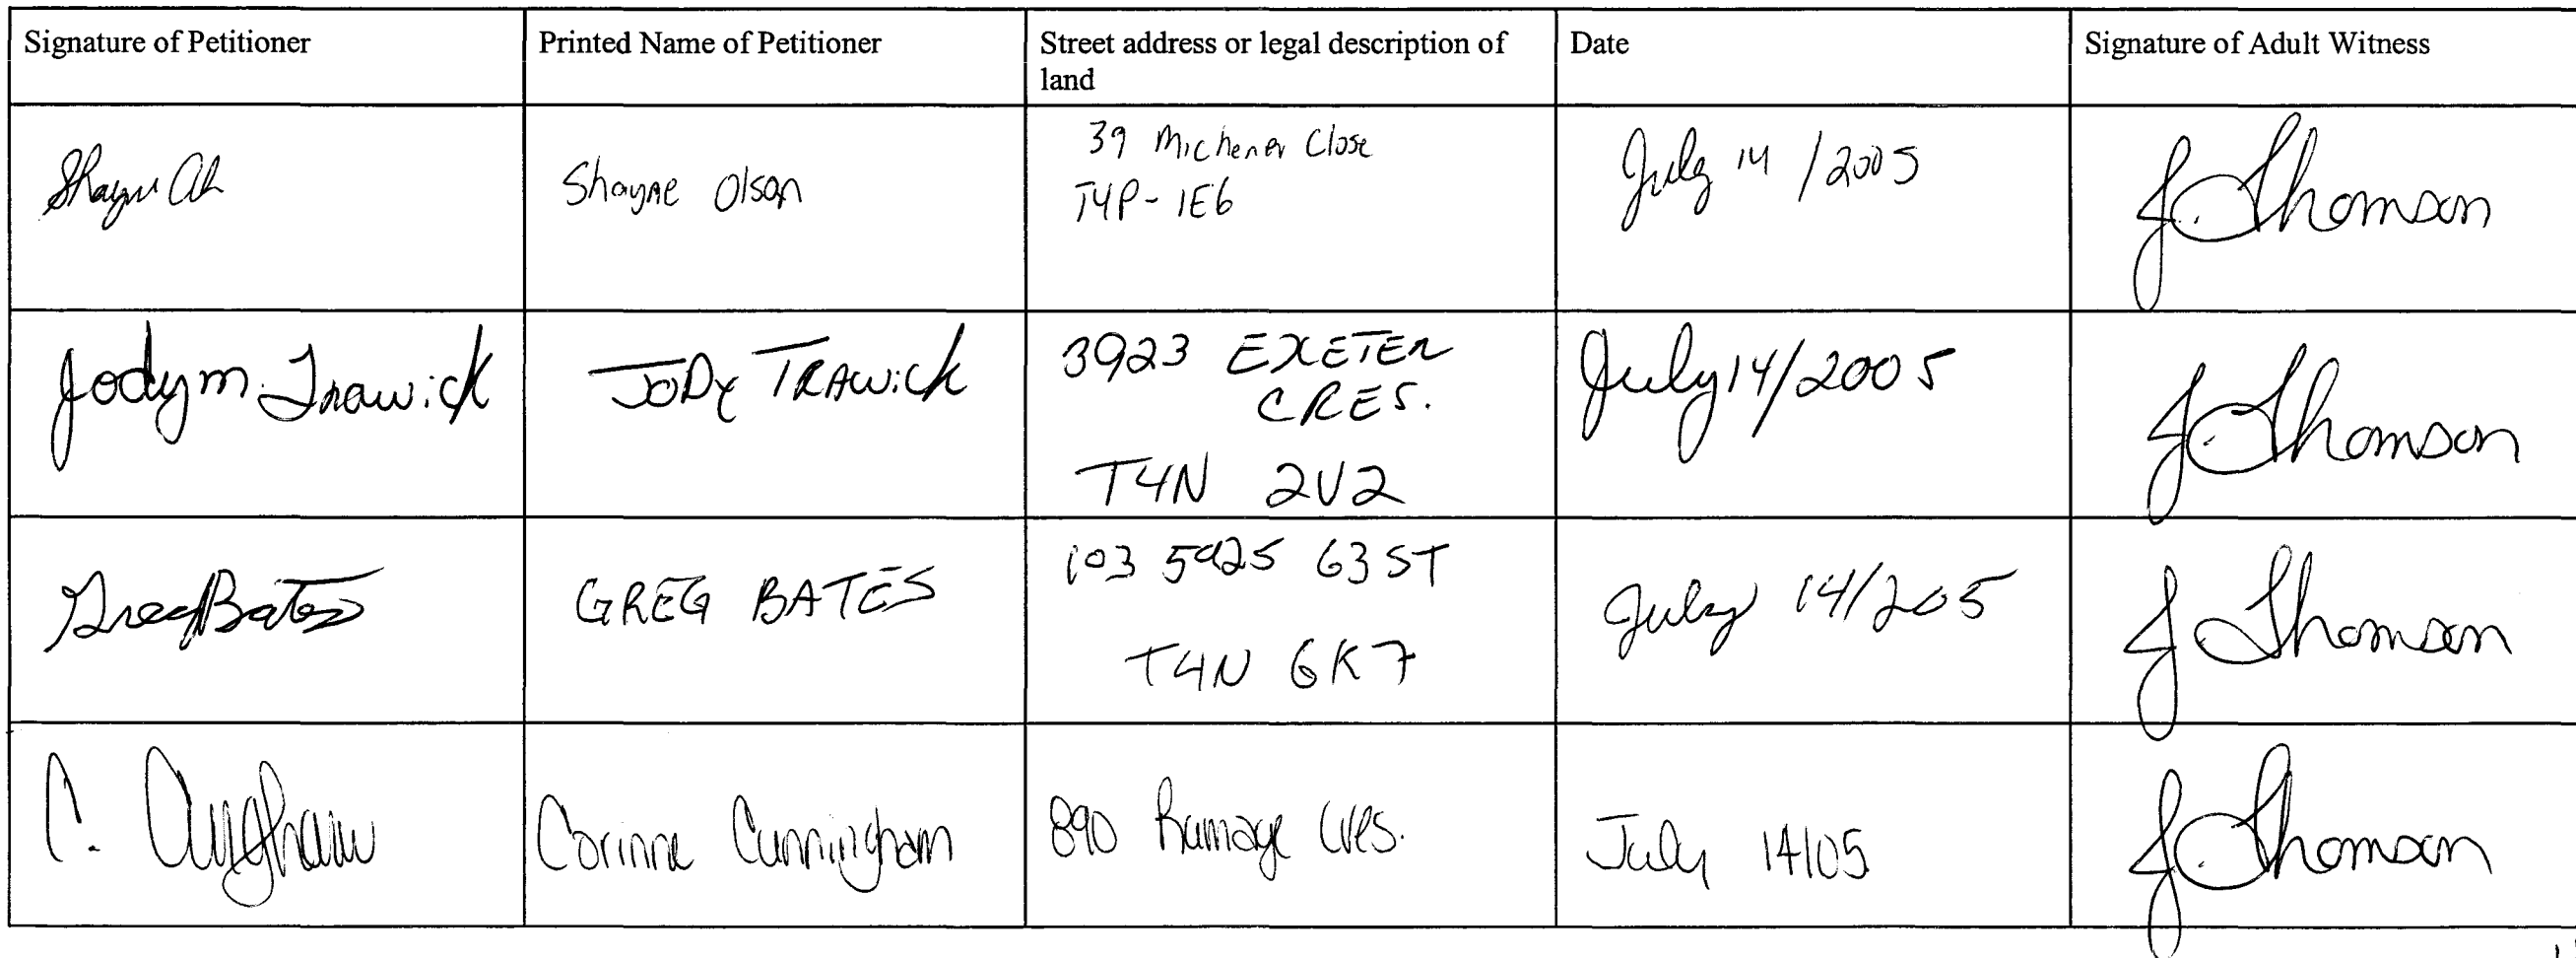 Signature of Petitioner
Printed Name of Petitioner
Street address or legal description of
land
Date
Signature of Adult Witness
Shayne Olson
39 Michener Close
T4P-1E6
July 14 /2005
J. Thomson
Jody m. Trawick
JODY TRAWicK
3923 EXETER
CRES.
T4N 2V2
July 14/2005
J. Thomson
Greg Bates
GREG BATES
103 5925 63 ST
T4N 6K7
July 14/205
J Thomson
C.
Corinne Cunningham
890 Ramage Cres.
July 14/05
J. Thomson